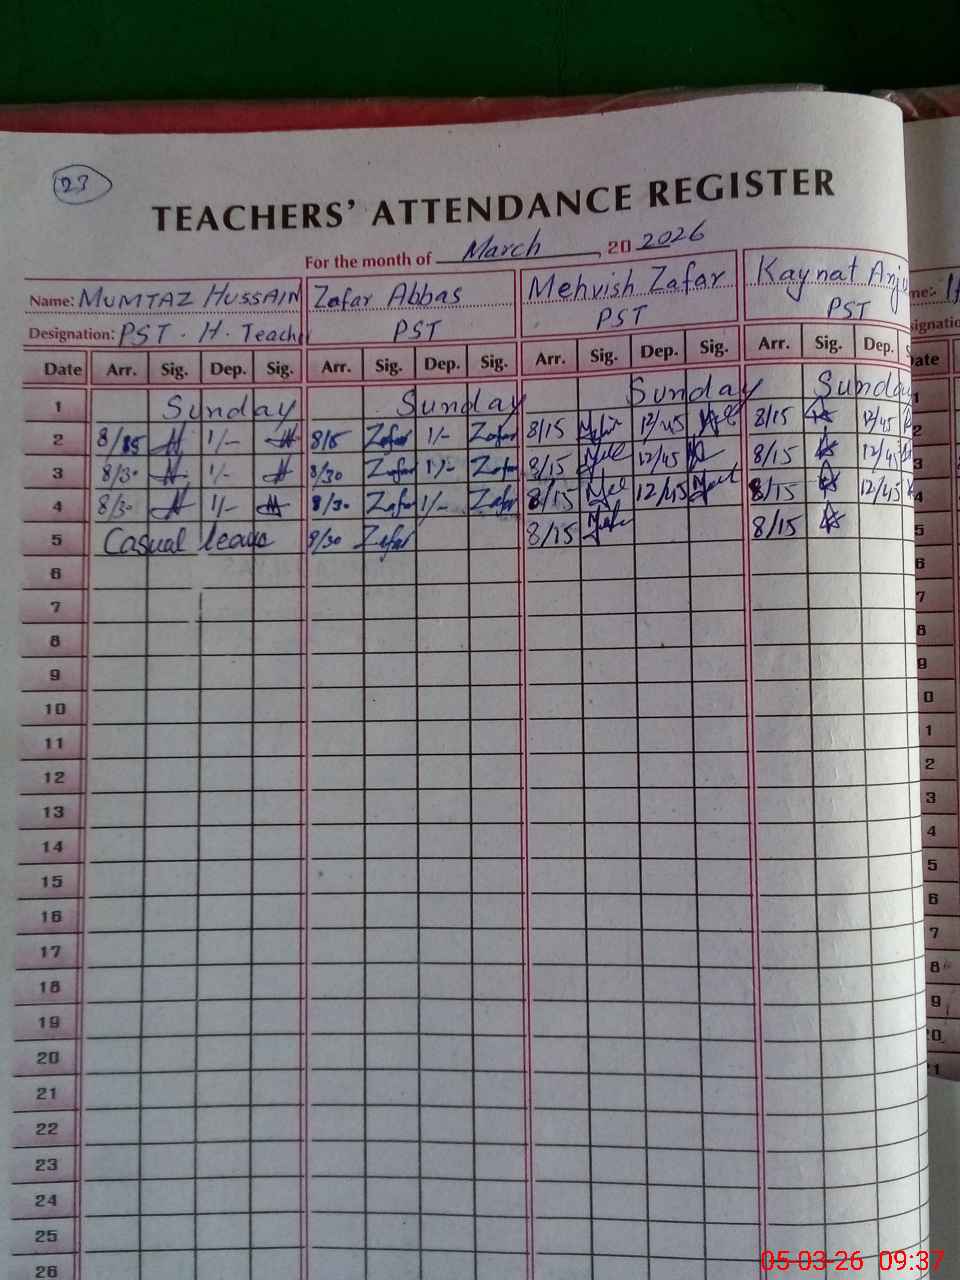 23
TEACHERS' ATTENDANCE REGISTER
For the month of March, 20 2026
Name: MUMTAZ HUSSAIN Zafar Abbas Mehvish Zafar Kaynat
Designation: PST - H. Teacher PST PST PST
Date Arr. Sig. Dep. Sig. Arr. Sig. Dep. Sig. Arr. Sig. Dep. Sig. Arr. Sig. Dep.
1 Sunday Sunday Sunday Sunday
2 1/- Zafar 1/- Zafar 8/15 12/45 8/15 12/45
3 8/30 1/- 8/30 Zafar 1/- Zafar 8/15 12/45 8/15 12/45
4 8/30 1/- 8/30 Zafar 1/- Zafar 8/15 12/45 8/15 12/45
5 Casual leave 8/30 Zafar 8/15 8/15
6
7
8
9
10
11
12
13
14
15
16
17
18
19
20
21
22
23
24
25
26
05-03-26 09:37